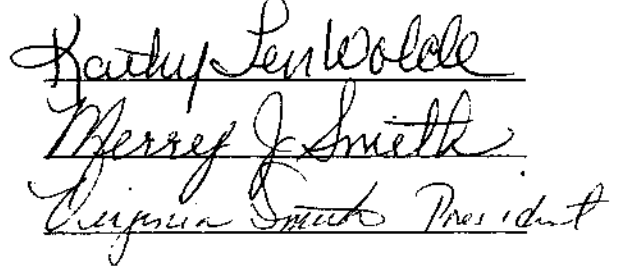 Kathy TenWolde
Merrey J Smieth
Virginia Smith President